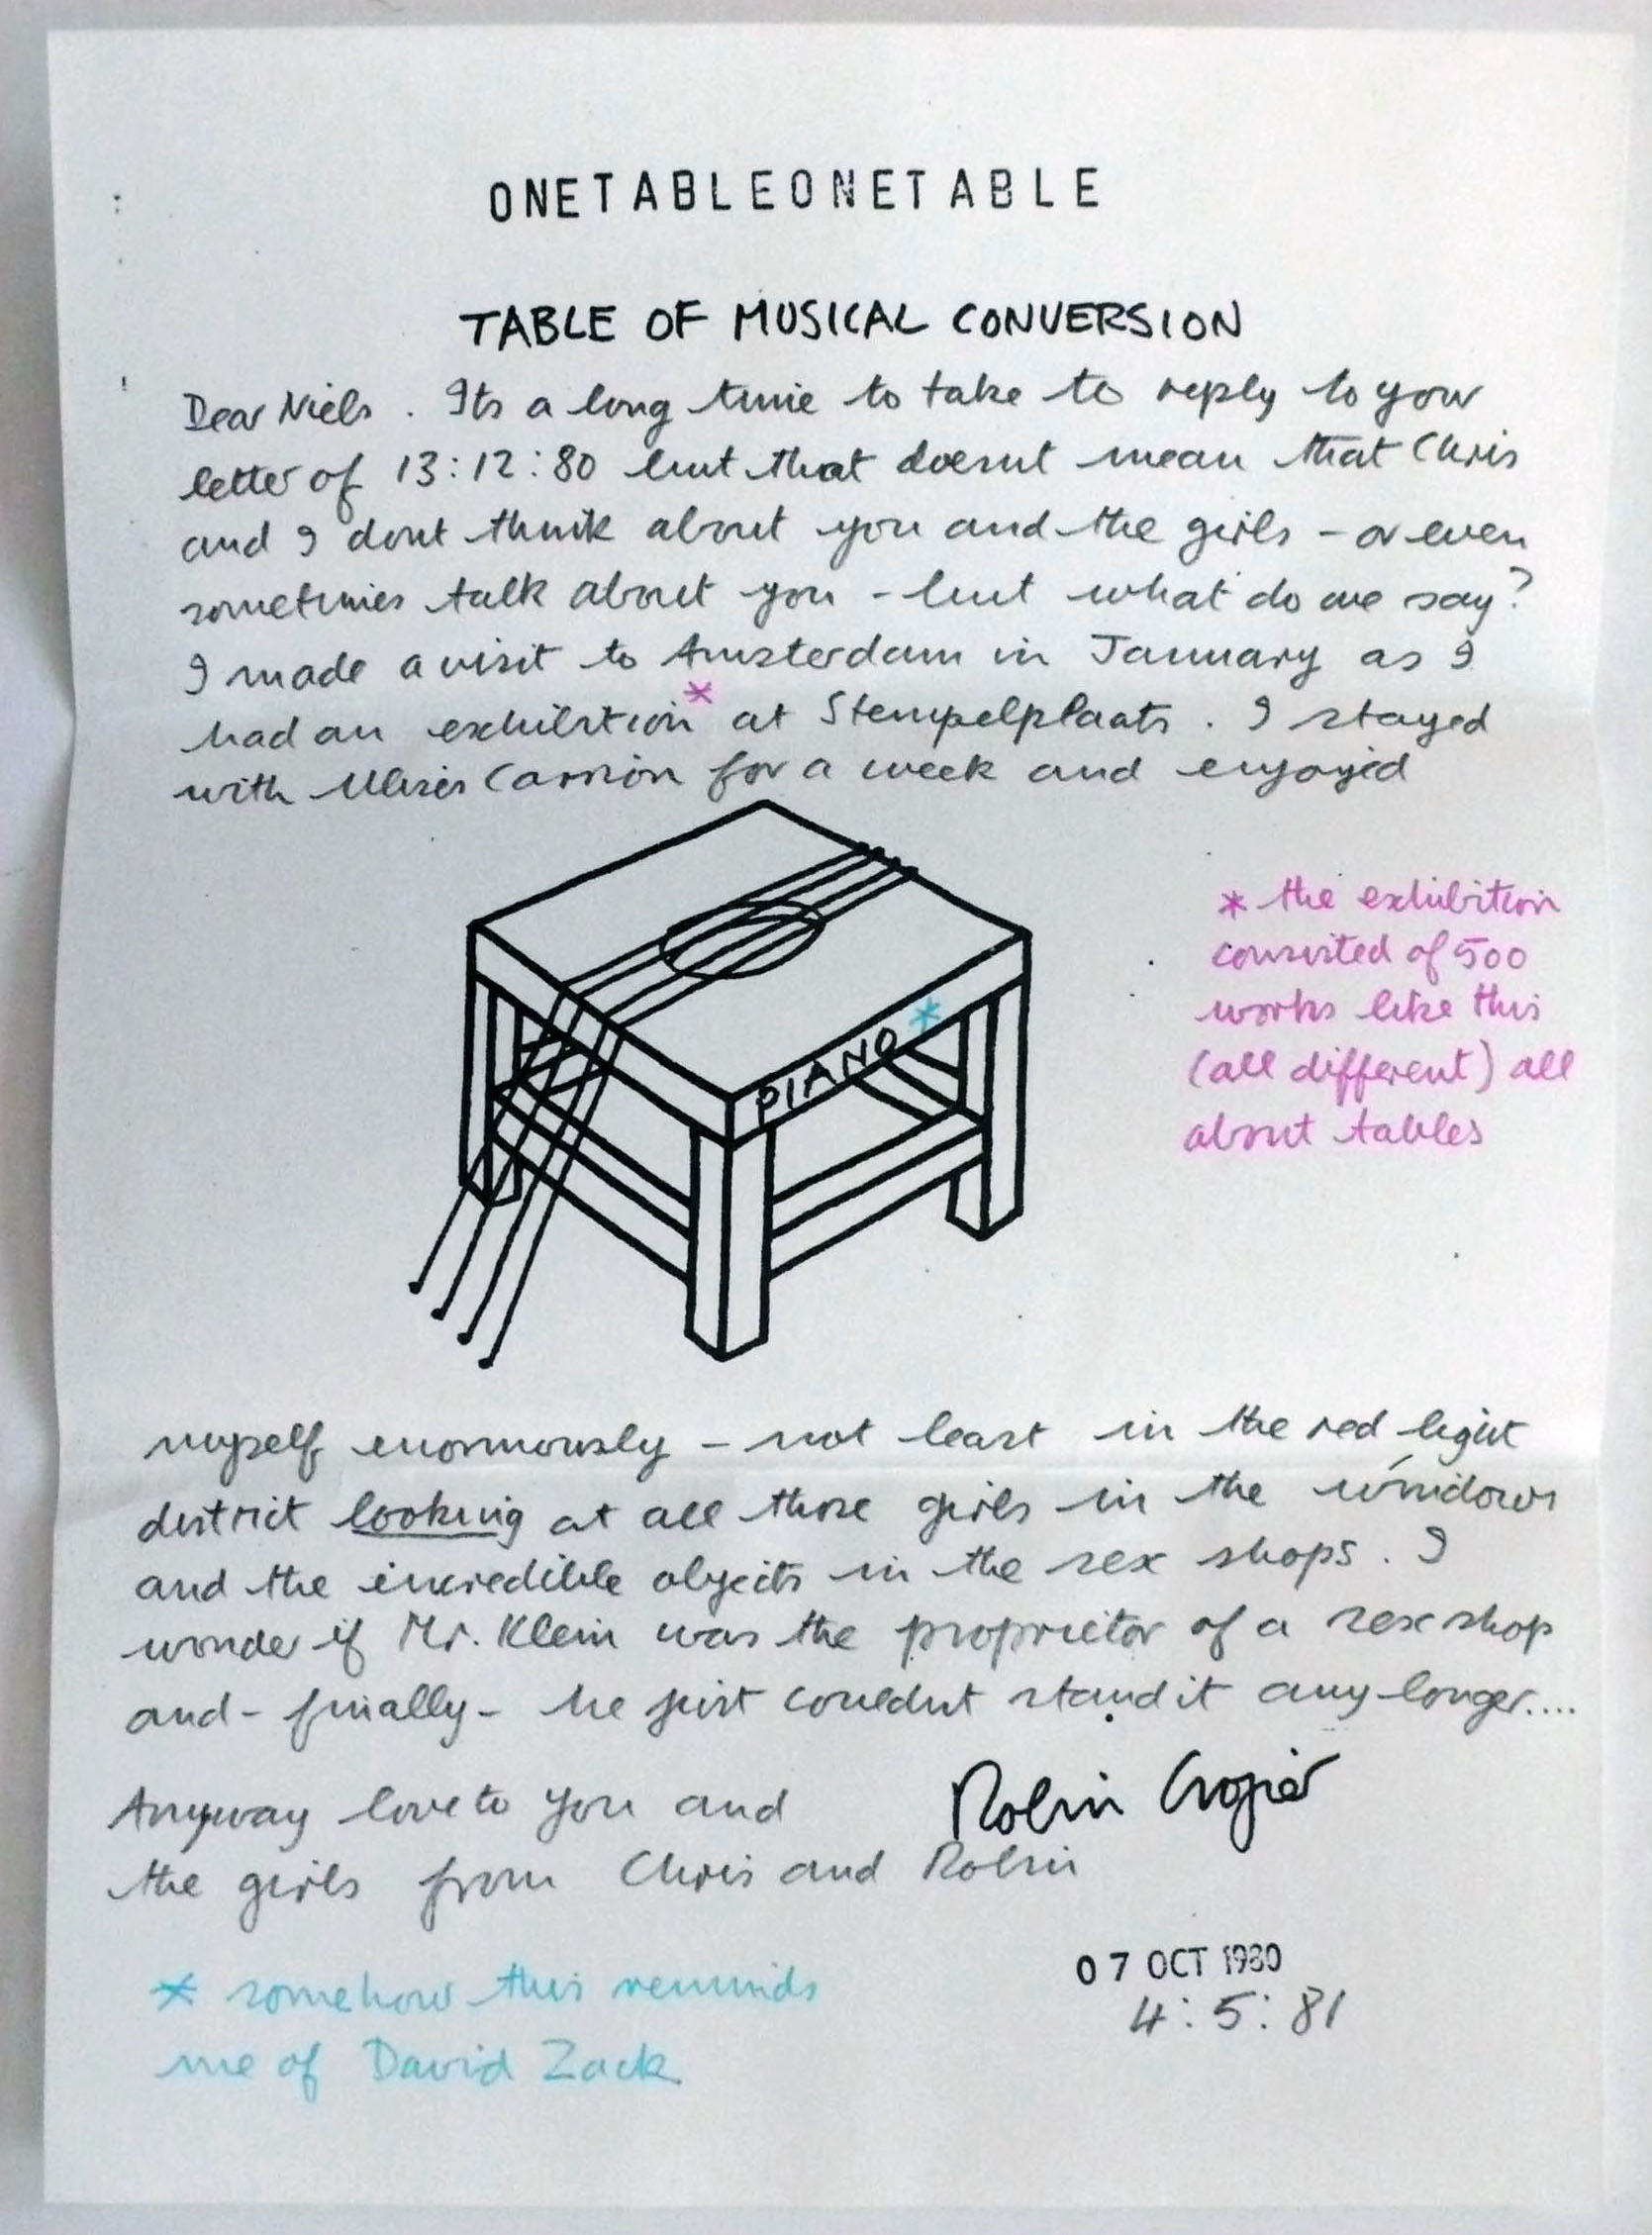 ONETABLEONETABLE
TABLE OF MUSICAL CONVERSION
Dear Niels. Its a long time to take to reply to your
letter of 13:12:80 but that doesnt mean that Chris
and I dont think about you and the girls – or even
sometimes talk about you – but what do we say?
I made a visit to Amsterdam in January as I
had an exhibition* at Stempelplaats. I stayed
with Ulises Carrion for a week and enjoyed
PIANO *
* the exhibition
consisted of 500
works like this
(all different) all
about tables
myself enormously – not least in the red light
district looking at all those girls in the windows
and the incredible objects in the sex shops. I
wonder if Mr. Klein was the proprietor of a sex shop
and – finally – he just couldnt stand it any longer....
Anyway love to you and
the girls from Chris and Robin
Robin Crozier
* somehow this reminds
me of David Zack
07 OCT 1980
4:5:81